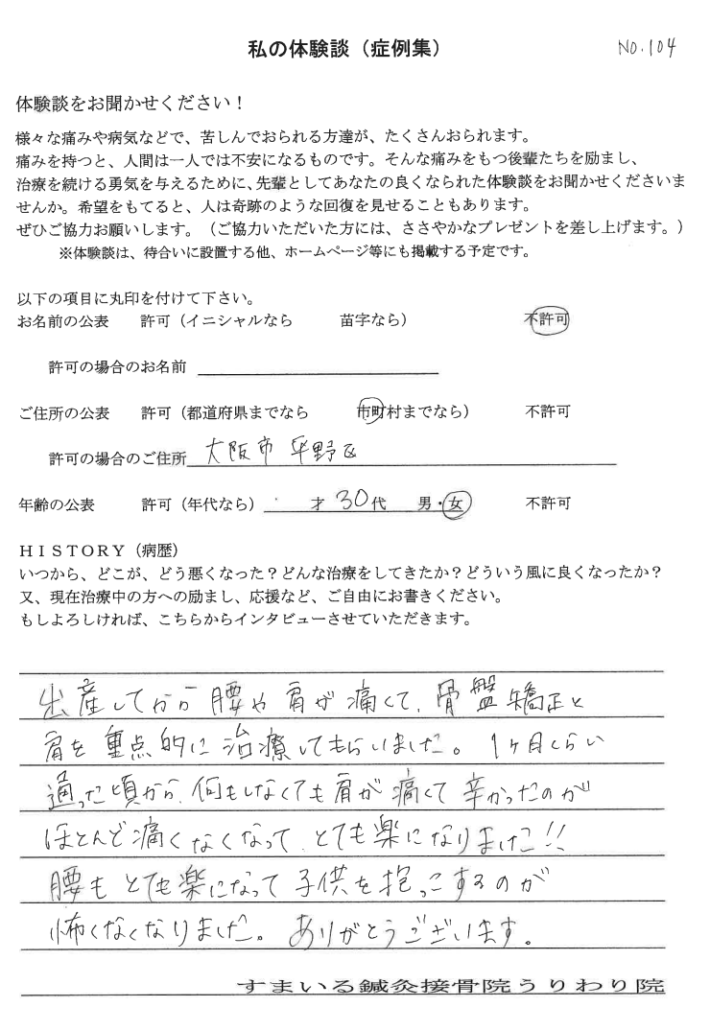 私の体験談（症例集）
NO.104
体験談をお聞かせください！
様々な痛みや病気などで、苦しんでおられる方達が、たくさんおられます。
痛みを持つと、人間は一人では不安になるものです。そんな痛みをもつ後輩たちを励まし、
治療を続ける勇気を与えるために、先輩としてあなたの良くなられた体験談をお聞かせくださいま
せんか。希望をもてると、人は奇跡のような回復を見せることもあります。
ぜひご協力お願いします。（ご協力いただいた方には、ささやかなプレゼントを差し上げます。）
※体験談は、待合いに設置する他、ホームページ等にも掲載する予定です。
以下の項目に丸印を付けて下さい。
お名前の公表　許可（イニシャルなら　苗字なら）　不許可
許可の場合のお名前
ご住所の公表　許可（都道府県までなら　市町村までなら）　不許可
許可の場合のご住所　大阪市 平野区
年齢の公表　許可（年代なら）　才 30代　男・女　不許可
ＨＩＳＴＯＲＹ（病歴）
いつから、どこが、どう悪くなった？どんな治療をしてきたか？どういう風に良くなったか？
又、現在治療中の方への励まし、応援など、ご自由にお書きください。
もしよろしければ、こちらからインタビューさせていただきます。
出産してから腰や肩が痛くて、骨盤矯正と
肩を重点的に治療してもらいました。1ヶ月くらい
通った頃から、何もしなくても肩が痛くて辛かったのが
ほとんど痛くなくなって、とても楽になりました!!
腰もとても楽になって子供を抱っこするのが
怖くなくなりました。ありがとうございます。
すまいる鍼灸接骨院うりわり院